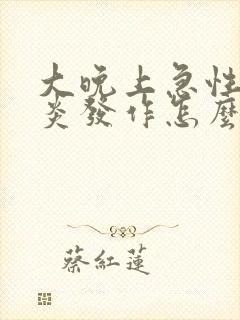 大晚上急性
炎發作怎麼
蔡紅蓮